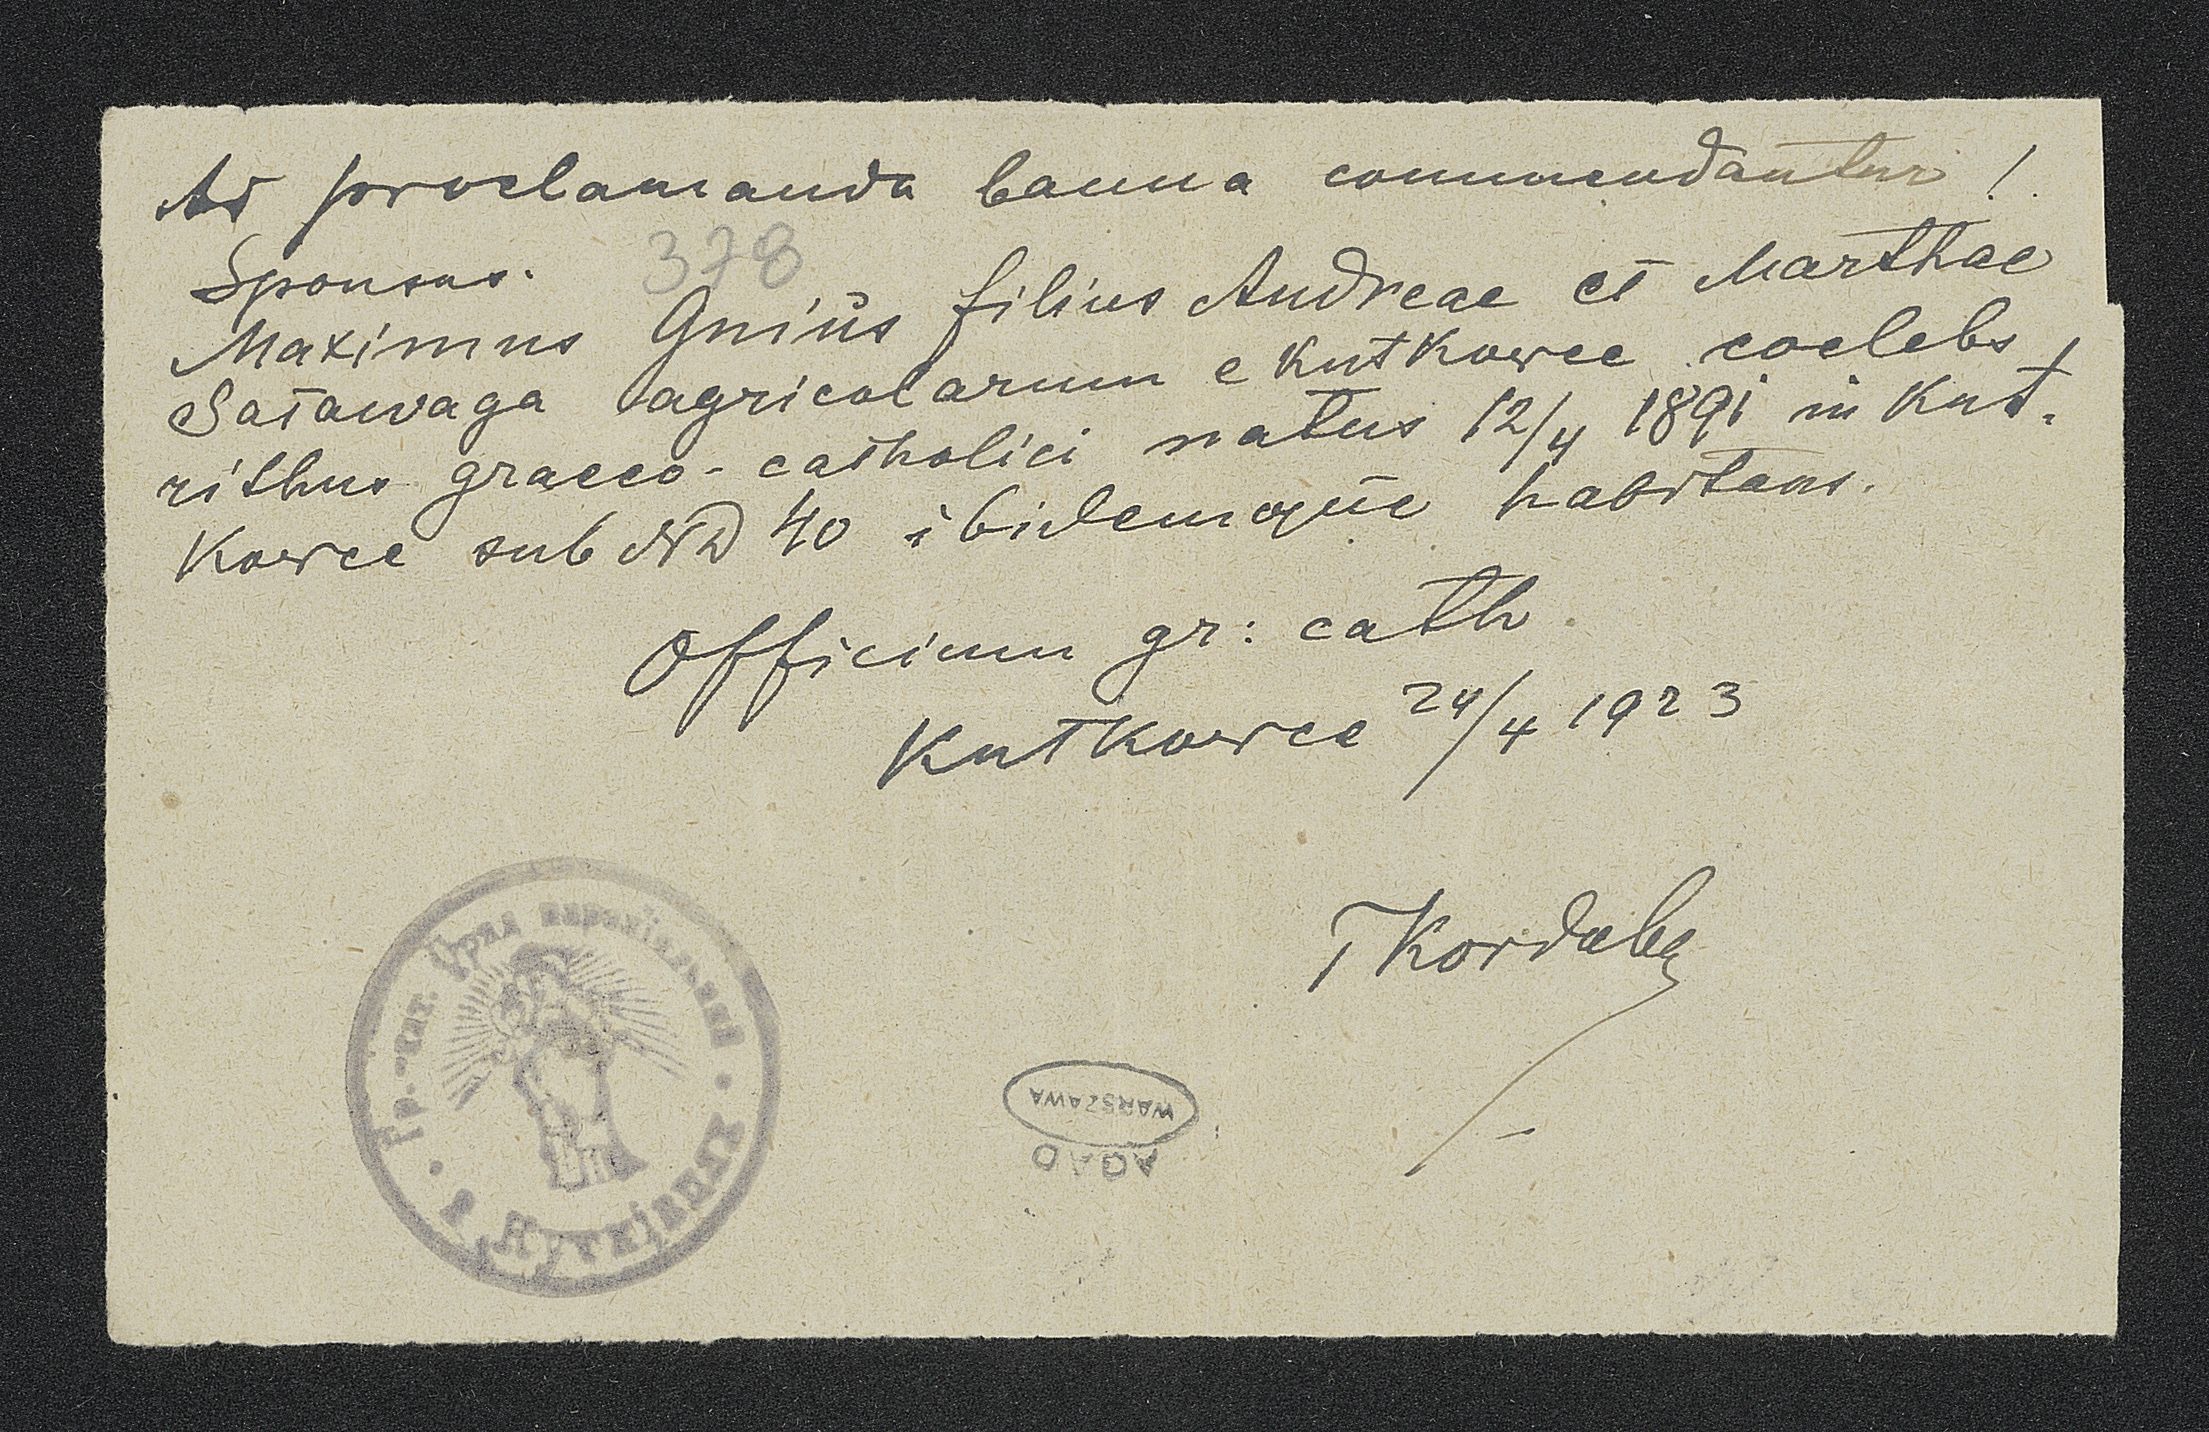 Ad proclamanda banna commendantur!
378
Sponsus.
Maximus Gniūs filius Andreae et Marthae
Satawaga agricolarum e Kutkowce coelebs,
rithus graeco-catholici natus 12/4 1891 in Kut-
kowce sub No 40 ibidemque habitans.
Officium gr: cath.
Kutkowce 24/4 1923
T Korduba
Гр.-кат. Уряд парохіяльний
в Кутківцях
WARSZAWA
AGAD